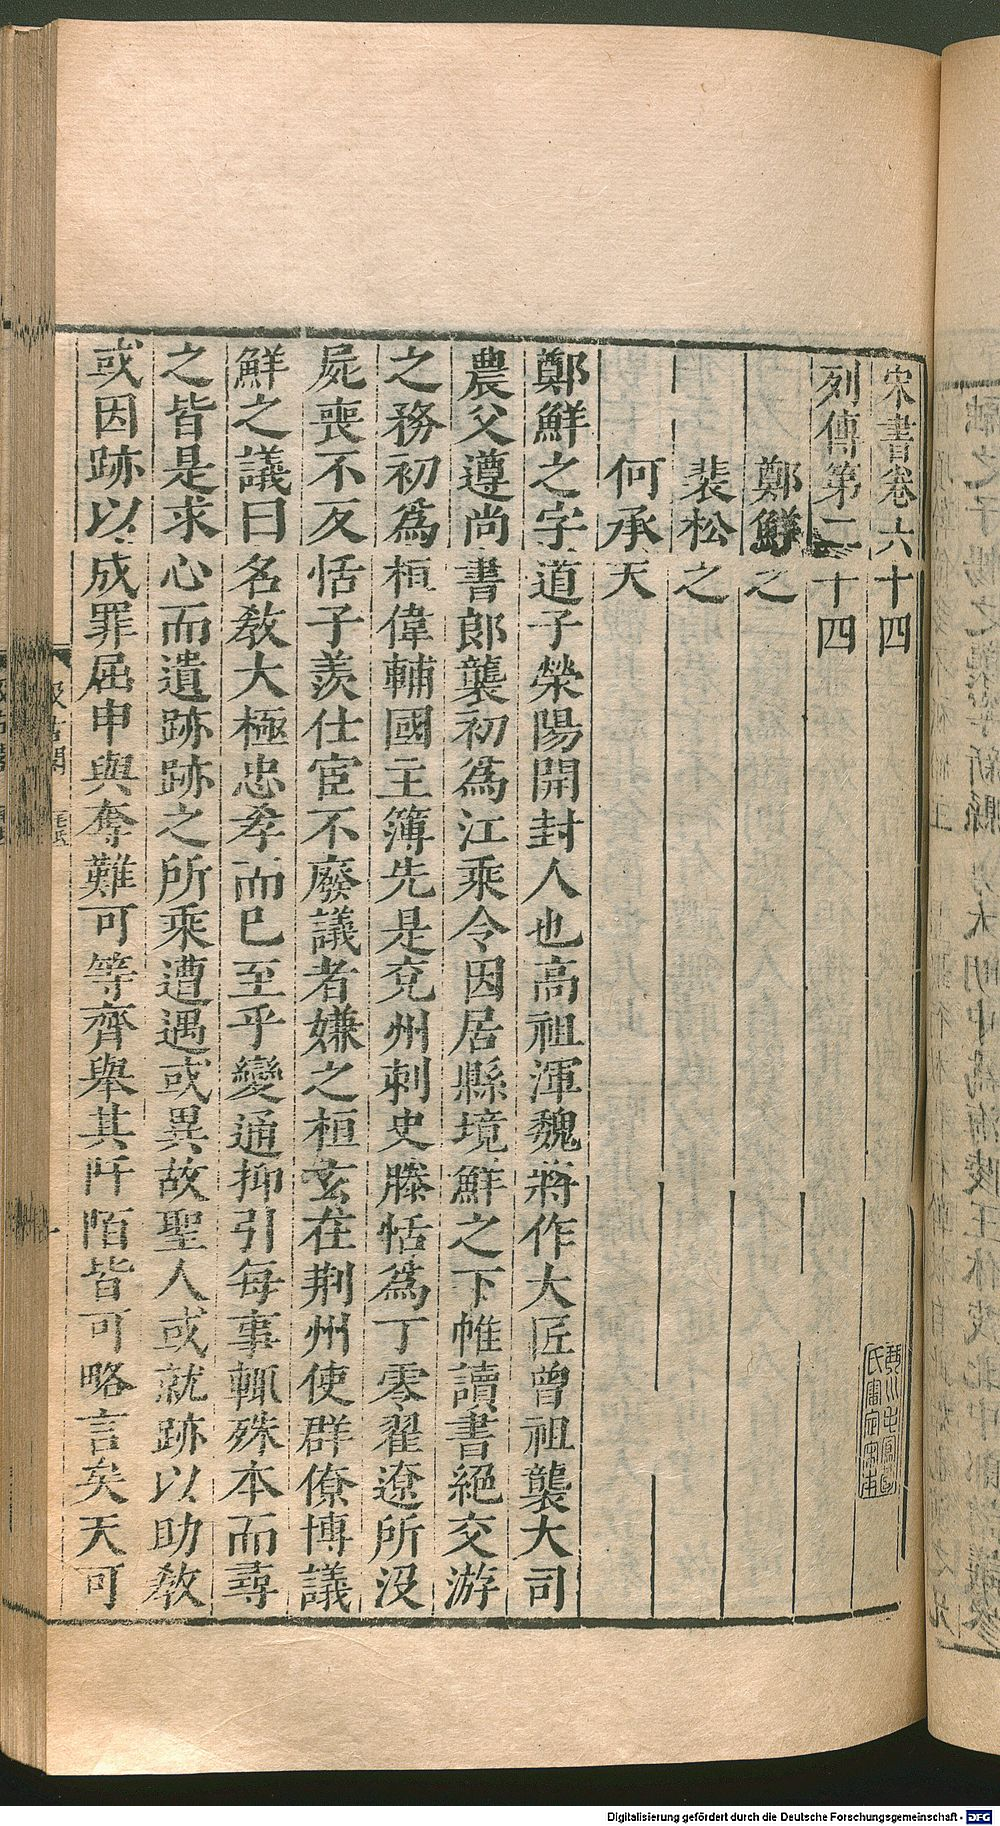 宋書卷六十四
列傳第二十四
鄭鮮之
裴松之
何承天
鄭鮮之字道子滎陽開封人也高祖渾魏將作大匠曾祖襲大司
農父遵尚書郎襲初爲江乘令因居縣境鮮之下帷讀書絕交游
之務初爲桓偉輔國主簿先是兗州刺史滕恬爲丁零翟遼所沒
屍喪不反恬子羨仕宦不廢議者嫌之桓玄在荆州使群僚博議
鮮之議曰名教大極忠孝而已至乎變通抑引每事輒殊本而尋
之皆是求心而遺跡跡之所乘遭遇或異故聖人或就跡以助教
或因跡以成罪屈申與奪難可等齊舉其阡陌皆可略言矣天可
汲古閣
毛氏
Digitalisierung gefördert durch die Deutsche Forschungsgemeinschaft - DFG